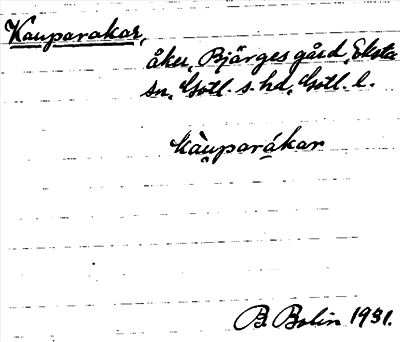 Kauparakar,
åker, Bjärges gård, Eksta
sn, Gotl. s. hd, Gotl. l.
kàu̯parákar
B. Bolin 1931.